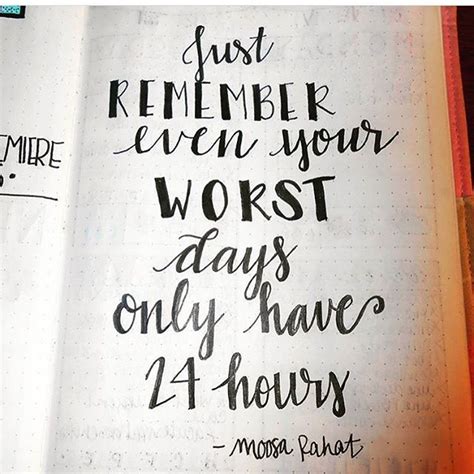 Just
REMEMBER
even your
WORST
days
only have
24 hours
- Moosa Rahat
EMIERE